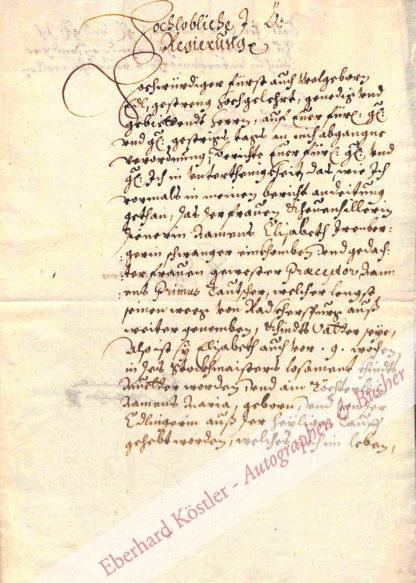 Hochlobliche I: Ö:
Regierunge
Hochwürdiger Fürst auch Wolgeborn
Edl, gestreng Hochgelehrt, genedig und
gebiettendt Herrn, auf Euer Fürl: gl:
und gl: gestrigs tags an mich abgangne
verordnung, berichte Euer Fürl: gl: und
gl: Ich in Unterthenigkheit das, wie Ich
vormals in meinem bericht andeitung
gethan, das der Frauen Khevenhillerin
dienerin Namens Elisabeth
schwanger einkhomben und gedach
ter Frauen gewester Praeceptor, Nam
ens Primus Tautscher, welcher lengst
seinen weeg von Radkherspurg auß
weiter genomben, Khindts Vatter seye,
Also ist sy Elisabeth auch vor .9. wochen
in des Stockhmaisters losament Khindts
Muetter worden und ain Töchterlein
Namens Maria, geborn, und von der
Edlingerin auß der heyligen Tauff
gehebt worden, welches noch im leben,
Eberhard Köstler - Autographen & Bücher